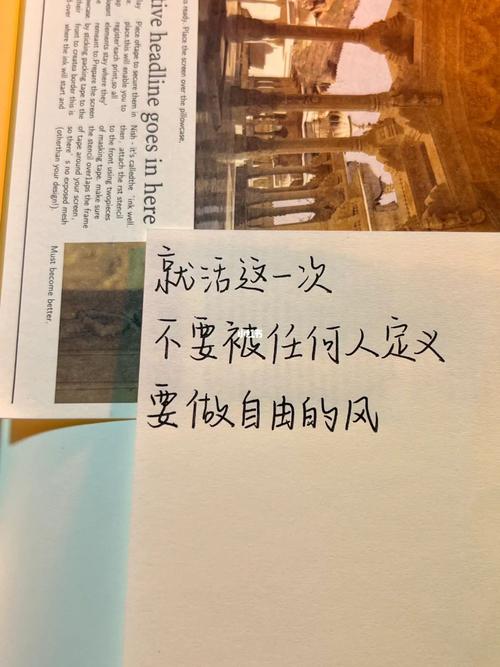 就活这一次
不要被任何人定义
要做自由的风
小红书
tive headline goes in here
s ready. Place the screen over the pillowcase.
Piece oftape to secure them in
place.this will enable you to
register'each print,so all
elements stay where they'
remeant to.Prepare the screen
by sticking packing tape to the
front to creates border this is
where the ink will start and
Nish - it's calledthe 'ink well.
then, attach the rst stencil
to the front using twopieces
of masking tape. make sure
the stencil overlaps the frame
of tape around your screen,
so there's no exposed mesh
(otherthan your design!).
Must become better.